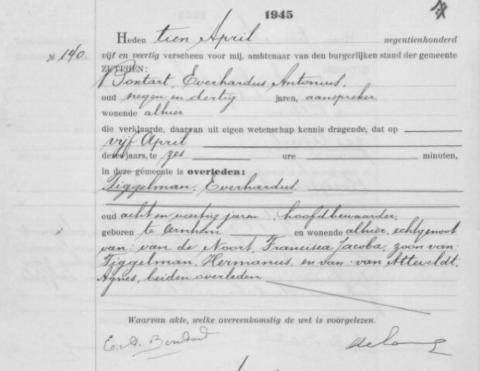 1945
Heden tien April negentienhonderd
No 140.
vijf en veertig verscheen voor mij, ambtenaar van den burgerlijken stand der gemeente
ZUTPHEN:
Bontart, Everhardus Antonius,
oud negen en dertig jaren, aanspreker
wonende alhier
die verklaarde, daarvan uit eigen wetenschap kennis dragende, dat op
vijf April
dezes jaars, te zes ure minuten,
in deze gemeente is overleden:
Tiggelman, Everhardus
oud acht en veertig jaren, hoofdbewaarder,
geboren te Arnhem en wonende alhier, echtgenoot
van van de Noort, Francisca Jacoba, zoon van
Tiggelman, Hermanus, en van van Atteveldt,
Agnes, beiden overleden
Waarvan akte, welke overeenkomstig de wet is voorgelezen.